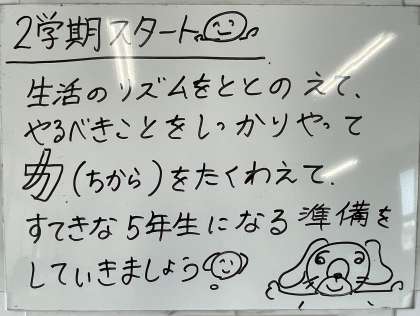 2学期スタート
生活のリズムをととのえて、
やるべきことをしっかりやって
力(ちから)をたくわえて、
すてきな5年生になる準備を
していきましょう